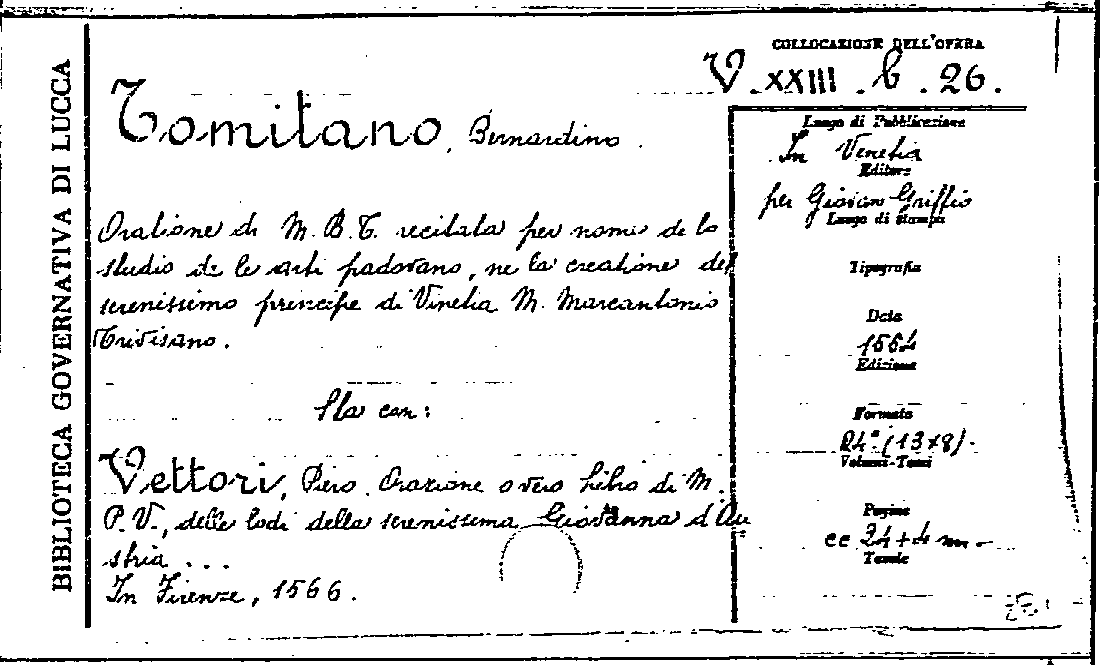 BIBLIOTECA GOVERNATIVA DI LUCCA
COLLOCAZIONE DELL'OPERA
V. XXIII. b. 26.
Tomitano, Bernardino.
Oratione di M. B. T. recitata per nome de lo
studio de le arti padovano, ne la creatione del
serenissimo principe di Vinetia M. Marcantonio
Trivisano.
Sta con:
Vettori, Piero. Orazione overo libro di M.
P. V., delle lodi della serenissima Giovanna d'Au
stria ...
In Firenze, 1566.
Luogo di Pubblicazione
In Venetia
Editore
per Giovan Griffio
Luogo di stampa
Tipografia
Data
1554
Edizione
Formato
24° (13x8).
Volumi-Tomi
Pagine
cc 24+4 nn.
Tavole